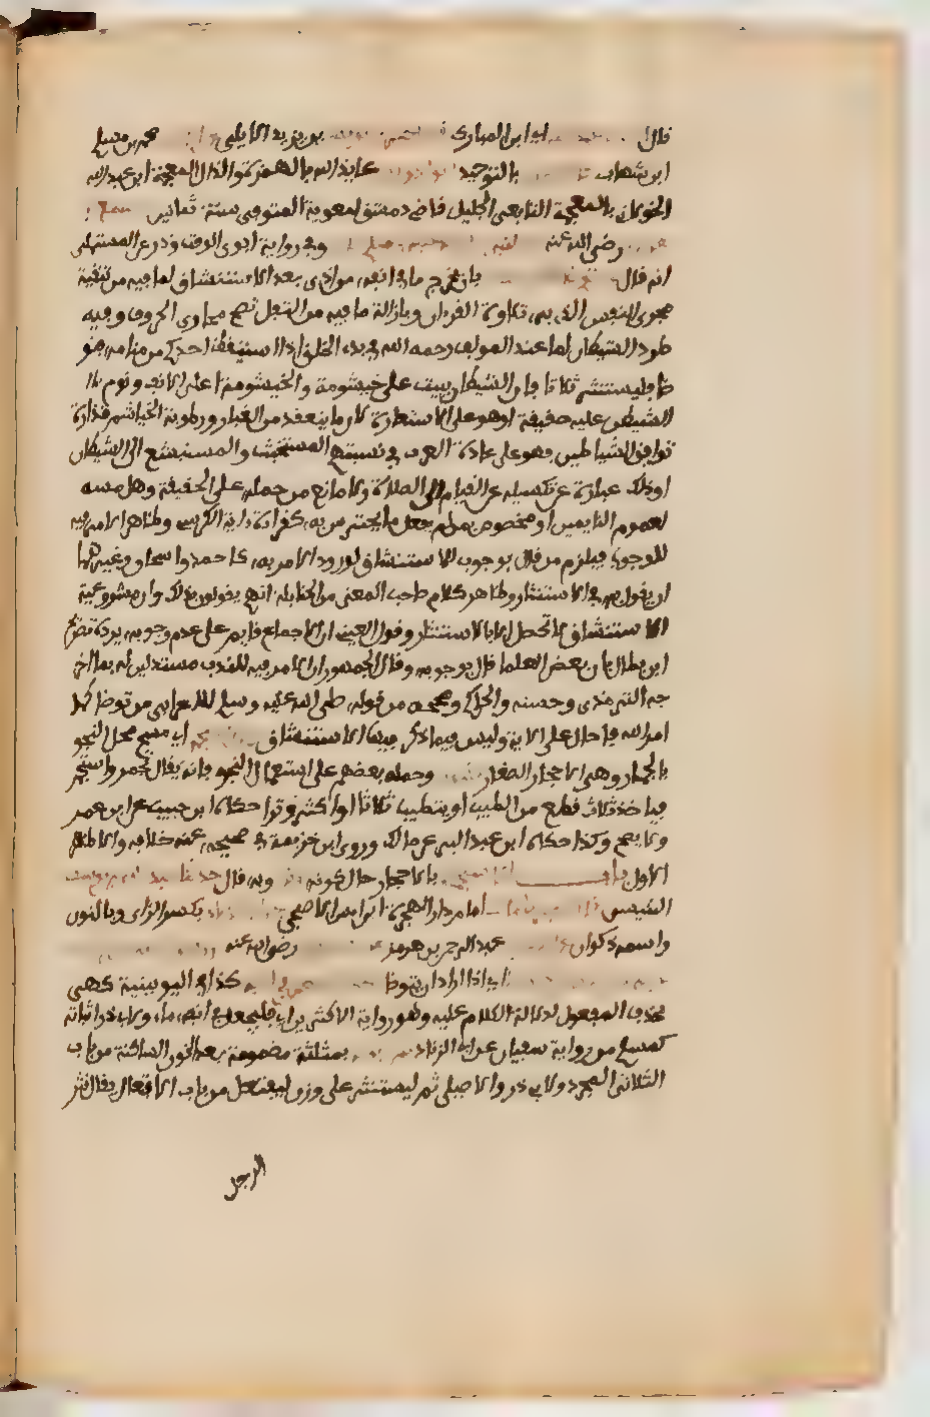 قال اى ابن المبارك بن يزيد الايلى محمد بن مسلم
ابن شهاب بالتوحيد عايذ الله بالهمزة والذال المعجمة ابن عبد الله
الخولانى بالمعجمة التابعى الجليل قاضى دمشق لمعوية المتوفى سنة ثمانين
رضى الله عنه وفى رواية ابوى الوقت وذر عن المستملى
انه قال بان يخرج ما فى انفه من اذى بعد الاستنشاق لما فيه من تنقية
مجرى النفس الذى به تلاوة القرءان وبازالة ما فيه من الثفل تصح مجارى الحروف وفيه
طرد الشيطان لما عند المولف رحمه الله فى بدء الخلق اذا استيقظ احدكم من منامه فتو
ضا فليستنثر ثلاثا فان الشيطان يبيت على خيشومه والخيشومة اعلى الانف ونوم
الشيطن عليه حقيقة او هو على الاستعارة لان ما ينعقد من الغبار ورطوبة الخياشم قذارة
توافق الشياطين فهو على عادة العرب فى نسبتهم المستخبث والمستبشع الى الشيطان
او ذلك عبارة عن تكسيله عن القيام الى الصلاة ولا مانع من حمله على الحقيقة وهل مبيته
لعموم النايمين او مخصوص بمن لم يفعل ما يحترس به كقراءة اية الكرسى وظاهر الامر فيه
للوجوب فيلزم من قال بوجوب الاستنشاق لورود الامر به كاحمد واسحاق وغيرهما
ان يقول به فى الاستنثار وظاهر كلام صاحب المغنى من الحنابلة انهم يقولون بذلك وان مشروعية
الاستنشاق لا تحصل الا بالاستنثار وقول العينى ان الاجماع قايم على عدم وجوبه يرده تصريح
ابن بطال بان بعض العلما قال بوجوبه وقال الجمهور ان الامر فيه للندب مستدلين له بما اخر
جه الترمذى وحسنه والحاكم وصححه من قوله صلى الله عليه وسلم للاعرابى توضا كما
امر الله فاحال على الاية وليس فيها ذكر الاستنشاق اى مسح محل النجو
بالجمار وهى الاحجار الصغار وحمله بعضهم على استعمال البخور فانه يقال تجمر واستجمر
فياخذ ثلاث قطع من الطيب او يتطيب ثلاثا او اكثر وترا حكاه ابن حبيب عن ابن عمر
ولا يصح وكذا حكاه ابن عبد البر عن مالك وروى ابن خزيمة فى صحيحه عنه خلافه والاظهر
الاول بالاحجار حال كونه وبه قال
التنيسى امام دار الهجرة بكسر الزاى وبالنون
واسمه ذكوان عبد الرحمن بن هرمز رضى الله عنه
اى اذا اراد ان يتوضا كذا فى اليونينية كهى
بحذف المفعول لدلالة الكلام عليه وهو رواية الاكثرين اى فليجعل فى انفه ماء ولابى ذر اثباته
كمسلم من رواية سفيان عن ابى الزناد بمثلثة مضمومة بعد النون الساكنة من باب
الثلاثى المجرد ولابى ذر والاصيلى ثم ليستنثر على وزن ليفتعل من باب الافتعال يقال نثر
الرجل